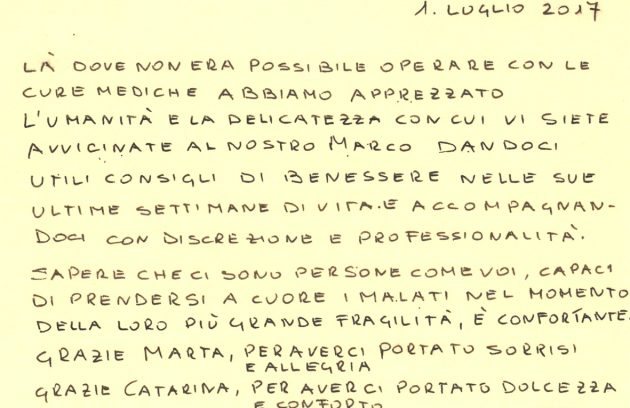 1. LUGLIO 2017
LÀ DOVE NON ERA POSSIBILE OPERARE CON LE
CURE MEDICHE ABBIAMO APPREZZATO
L'UMANITÀ E LA DELICATEZZA CON CUI VI SIETE
AVVICINATE AL NOSTRO MARCO DANDOCI
UTILI CONSIGLI DI BENESSERE NELLE SUE
ULTIME SETTIMANE DI VITA. E ACCOMPAGNAN-
DOCI CON DISCREZIONE E PROFESSIONALITÀ.
SAPERE CHE CI SONO PERSONE COME VOI, CAPACI
DI PRENDERSI A CUORE I MALATI NEL MOMENTO
DELLA LORO PIÙ GRANDE FRAGILITÀ, È CONFORTANTE.
GRAZIE MARTA, PER AVERCI PORTATO SORRISI
E ALLEGRIA
GRAZIE CATARINA, PER AVERCI PORTATO DOLCEZZA
E CONFORTO